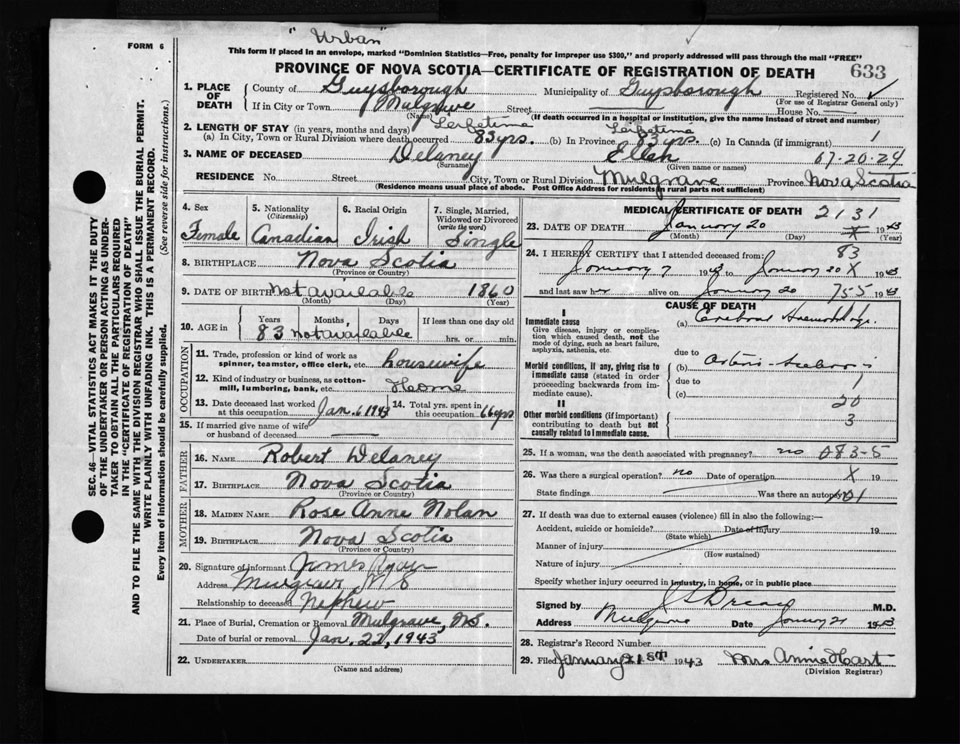 "Urban"
FORM 6
This form if placed in an envelope, marked "Dominion Statistics—Free, penalty for improper use $300," and properly addressed will pass through the mail "FREE"
PROVINCE OF NOVA SCOTIA—CERTIFICATE OF REGISTRATION OF DEATH 633
1. PLACE OF DEATH County of Guysborough Municipality of Guysborough Registered No.
(For use of Registrar General only)
If in City or Town Mulgrave Street House No.
(Name) (If death occurred in a hospital or institution, give the name instead of street and number)
2. LENGTH OF STAY (in years, months and days) Lifetime Lifetime
(a) In City, Town or Rural Division where death occurred 83 yrs. (b) In Province 83 yrs. (c) In Canada (if immigrant) 1
3. NAME OF DECEASED Delaney Ellen 67-20-24
(Surname) (Given name or names)
RESIDENCE No. Street City, Town or Rural Division Mulgrave Province Nova Scotia
(Residence means usual place of abode. Post Office Address for residents in rural parts not sufficient)
4. Sex Female
5. Nationality (Citizenship) Canadian
6. Racial Origin Irish
7. Single, Married, Widowed or Divorced (write the word) Single
8. BIRTHPLACE Nova Scotia
(Province or Country)
9. DATE OF BIRTH Not available 1860
(Month) (Day) (Year)
10. AGE in Years Months Days If less than one day old
83 not available hrs. or min.
OCCUPATION
11. Trade, profession or kind of work as spinner, teamster, office clerk, etc. housewife
12. Kind of industry or business, as cotton-mill, lumbering, bank, etc. Home
13. Date deceased last worked at this occupation Jan. 6 1943
14. Total yrs. spent in this occupation 66 yrs
15. If married give name of wife or husband of deceased
FATHER
16. NAME Robert Delaney
17. BIRTHPLACE Nova Scotia
(Province or Country)
MOTHER
18. MAIDEN NAME Rose Anne Nolan
19. BIRTHPLACE Nova Scotia
(Province or Country)
20. Signature of informant James Ryan
Address Mulgrave N S
Relationship to deceased Nephew
21. Place of Burial, Cremation or Removal Mulgrave, N.S.
Date of burial or removal Jan. 22, 1943
22. UNDERTAKER
(Name and address)
MEDICAL CERTIFICATE OF DEATH 2131
23. DATE OF DEATH January 20 1943
(Month) (Day) (Year)
83
24. I HEREBY CERTIFY that I attended deceased from:
January 7 1943 to January 20 X 1943
and last saw her alive on January 20 755 1943
CAUSE OF DEATH
I
Immediate cause
Give disease, injury or complication which caused death, not the mode of dying, such as heart failure, asphyxia, asthenia, etc.
(a) Cerebral Haemorrhage
due to
Morbid conditions, if any, giving rise to immediate cause (stated in order proceeding backwards from immediate cause).
(b)
due to 1
(c) 20
II
Other morbid conditions (if important) contributing to death but not causally related to immediate cause.
3
25. If a woman, was the death associated with pregnancy? no 083-5
26. Was there a surgical operation? no Date of operation X 19
State findings Was there an autopsy?
27. If death was due to external causes (violence) fill in also the following:—
Accident, suicide or homicide? Date of injury 19
(State which)
Manner of injury
(How sustained)
Nature of injury
Specify whether injury occurred in industry, in home, or in public place
Signed by M.D.
Address Mulgrave Date January 21 1943
28. Registrar's Record Number
29. Filed January 21st 1943 Mrs Annie Hart
(Division Registrar)
SEC. 46—VITAL STATISTICS ACT MAKES IT THE DUTY
OF THE UNDERTAKER OR PERSON ACTING AS UNDER-
TAKER TO OBTAIN ALL THE PARTICULARS REQUIRED
IN THE "CERTIFICATE OF REGISTRATION OF DEATH"
AND TO FILE THE SAME WITH THE DIVISION REGISTRAR WHO SHALL ISSUE THE BURIAL PERMIT.
WRITE PLAINLY WITH UNFADING INK. THIS IS A PERMANENT RECORD.
Every item of information should be carefully supplied. (See reverse side for instructions.)